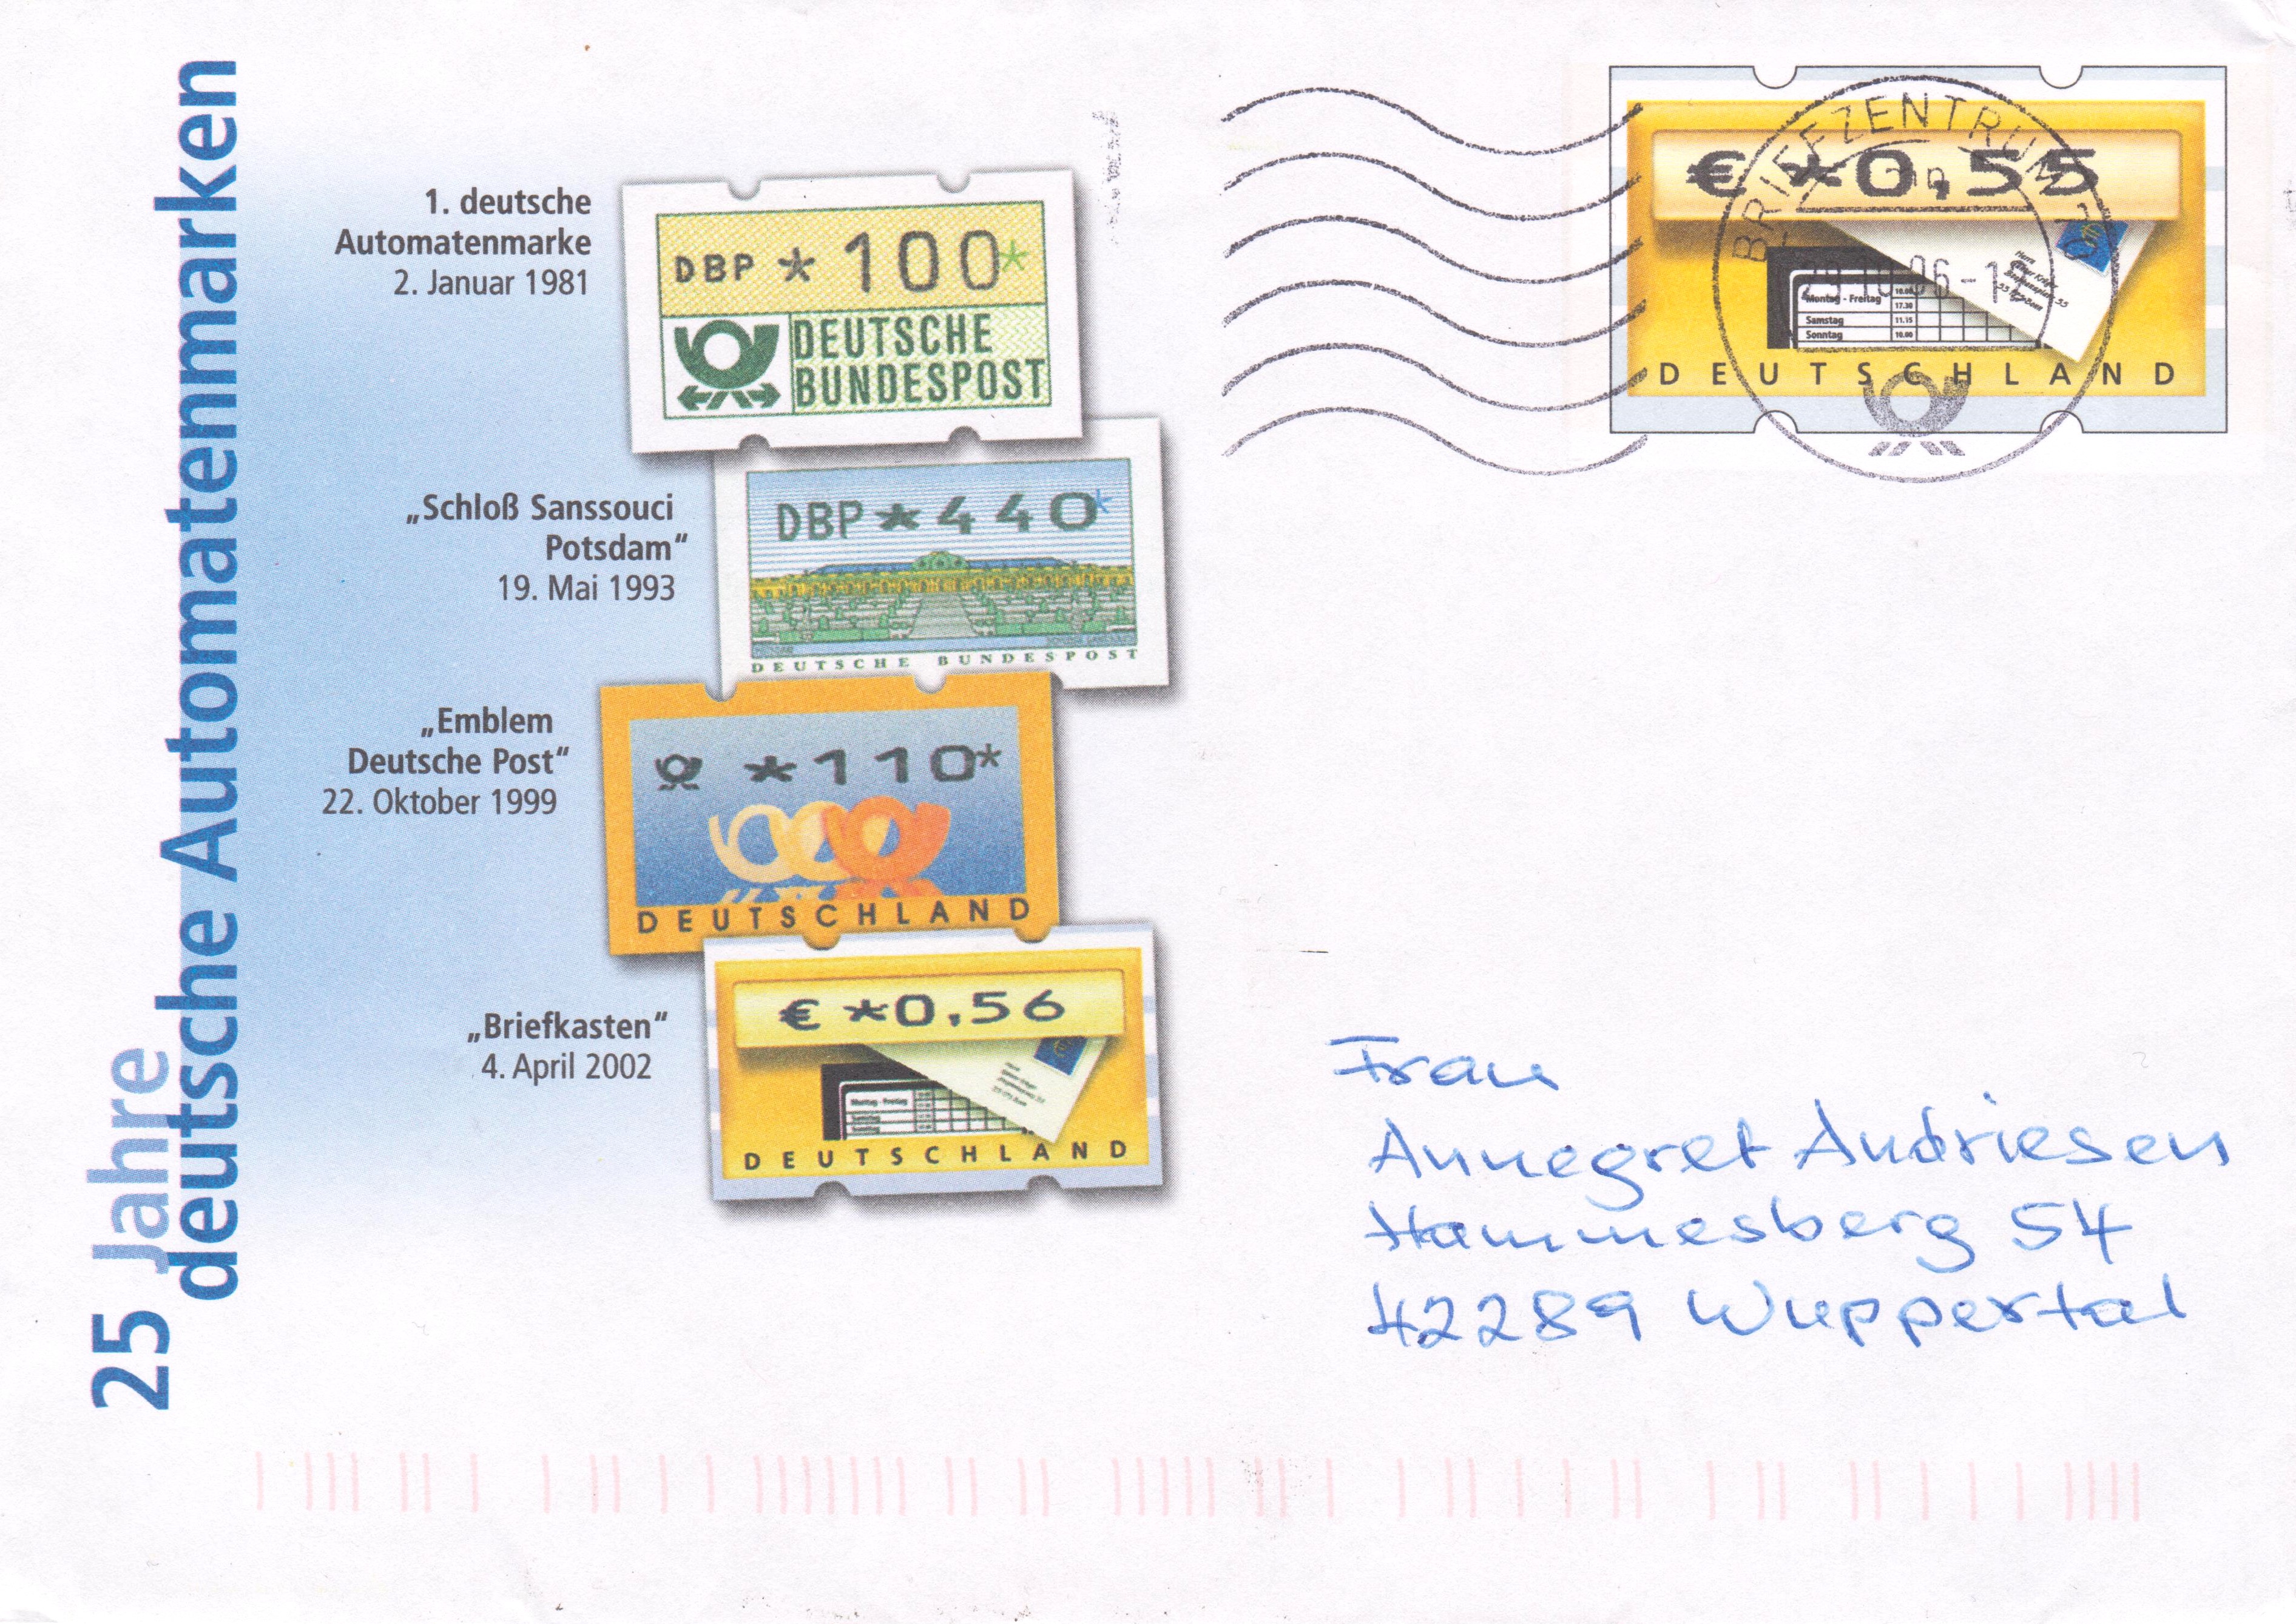 25 Jahre
deutsche Automatenmarken
1. deutsche
Automatenmarke
2. Januar 1981
DBP *100*
DEUTSCHE
BUNDESPOST
„Schloß Sanssouci
Potsdam“
19. Mai 1993
DBP*440*
DEUTSCHE BUNDESPOST
„Emblem
Deutsche Post“
22. Oktober 1999
*110*
DEUTSCHLAND
„Briefkasten“
4. April 2002
€ *0,56
Montag - Freitag
Samstag
Sonntag
DEUTSCHLAND
€ *0,55
BRIEFZENTRUM
Montag - Freitag 10.00
17.30
Samstag 11.15
Sonntag 10.00
DEUTSCHLAND
Frau
Annegret Andriesen
Hammesberg 54
42289 Wuppertal